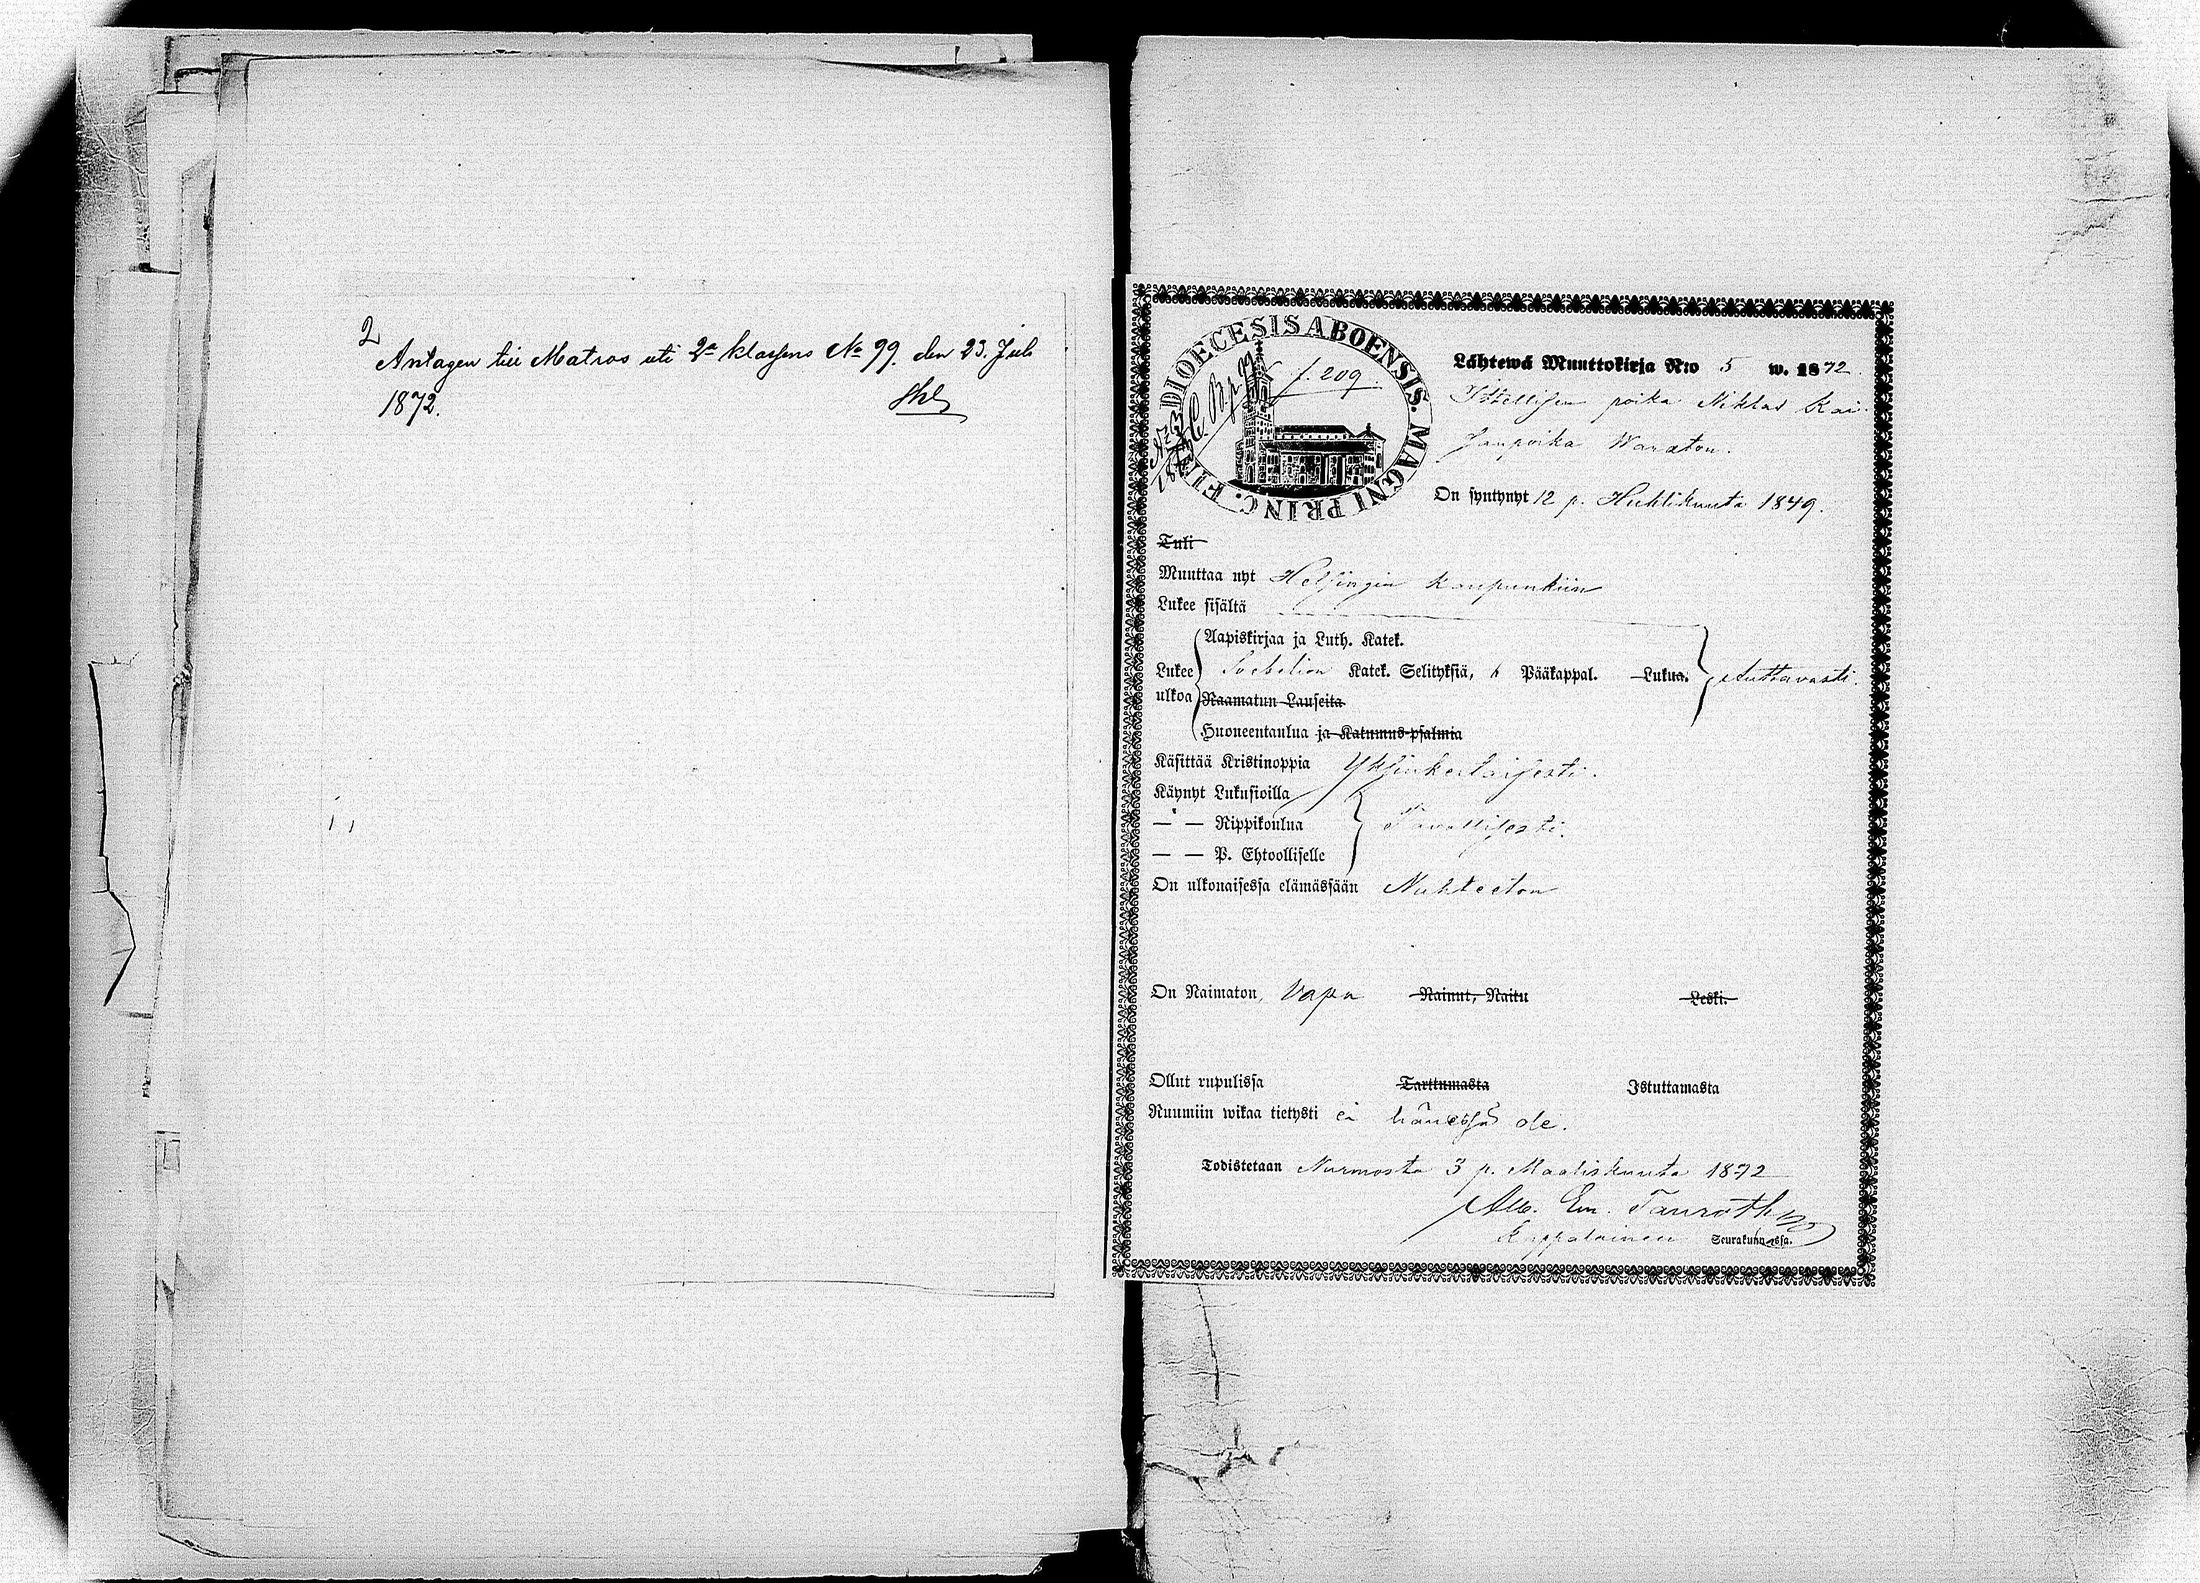 2
Antagen till Matros uti 2a klassens No 99. den 23. Juli
1872.
DIOECESIS ABOENSIS. MAGNI PRINC.
f. 209.
Lähtewä Muuttokirja N:o 5 w. 1872.
Itsellisen poika Niklas Kai-
Janpoika Waraton.
On syntynyt 12 p. Huhtikuuta 1849.
Tuli
Muuttaa nyt Helsingin kaupunkiin
Lukee sisältä
Aapiskirjaa ja Luth. Katek.
Lukee ulkoa Svebelion Katek. Selityksiä, Pääkappal. Lukua. Auttavasti.
Raamatun Lauseita
Huoneentaulua ja Katumus-psalmia
Käsittää Kristinoppia Yksinkertaisesti.
Käynyt Lukusioilla
— " — Rippikoulua Tavallisesti.
— — P. Ehtoolliselle
On ulkonaisessa elämässään Nuhteeton
On Naimaton, Vapa Nainut, Naitu Leski.
Ollut rupulissa Tarttumasta Istuttamasta
Ruumiin wikaa tietysti ei hänessä ole.
Todistetaan Nurmosta 3 p. Maaliskuuta 1872
Alb. Em. Tanroth
Kappalainen Seurakunnassa.